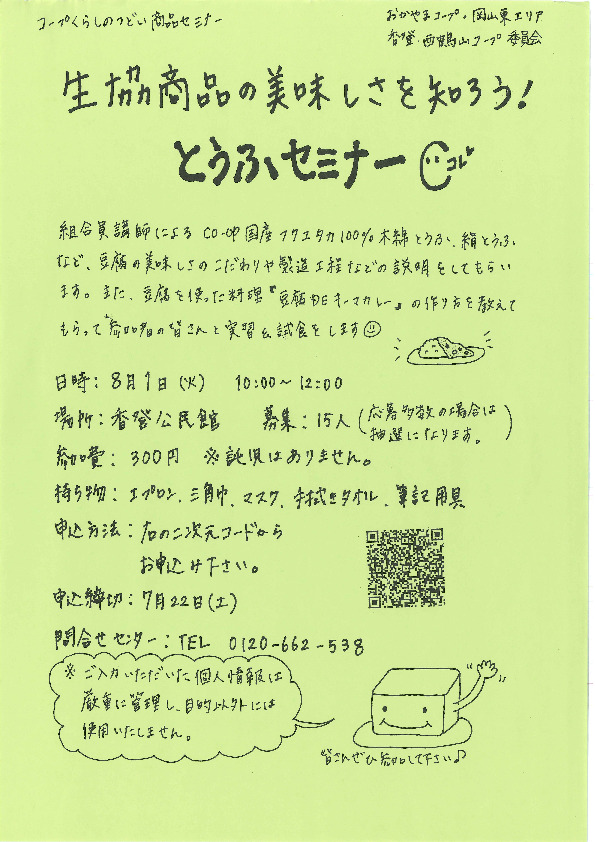 コープくらしのつどい商品セミナー
おかやまコープ・岡山東エリア
香登・西鶴山コープ委員会
生協商品の美味しさを知ろう!
とうふセミナー
コレ
組合員講師による CO-OP国産フクユタカ100%木綿とうふ、絹とうふ
など、豆腐の美味しさのこだわりや製造工程などの説明をしてもらい
ます。また、豆腐を使った料理『豆腐DEキーマカレー』の作り方を教えて
もらって参加者の皆さんと実習&試食をします
日時:8月1日(火) 10:00〜12:00
場所:香登公民館 募集:15人(応募多数の場合は
抽選になります。)
参加費:300円 ※託児はありません。
持ち物:エプロン、三角巾、マスク、手拭きタオル、筆記用具
申込方法:右の二次元コードから
お申込み下さい。
申込締切:7月22日(土)
問合せセンター:TEL 0120-662-538
※ご入力いただいた個人情報は
厳重に管理し、目的以外には
使用いたしません。
皆さんぜひ参加して下さい♪